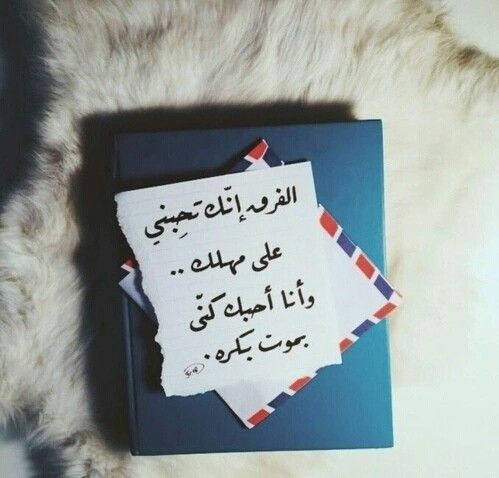 الفرق إنّك تحِبني
على مهلك ..
وأنا أحبك كنّي
بموت بكره .